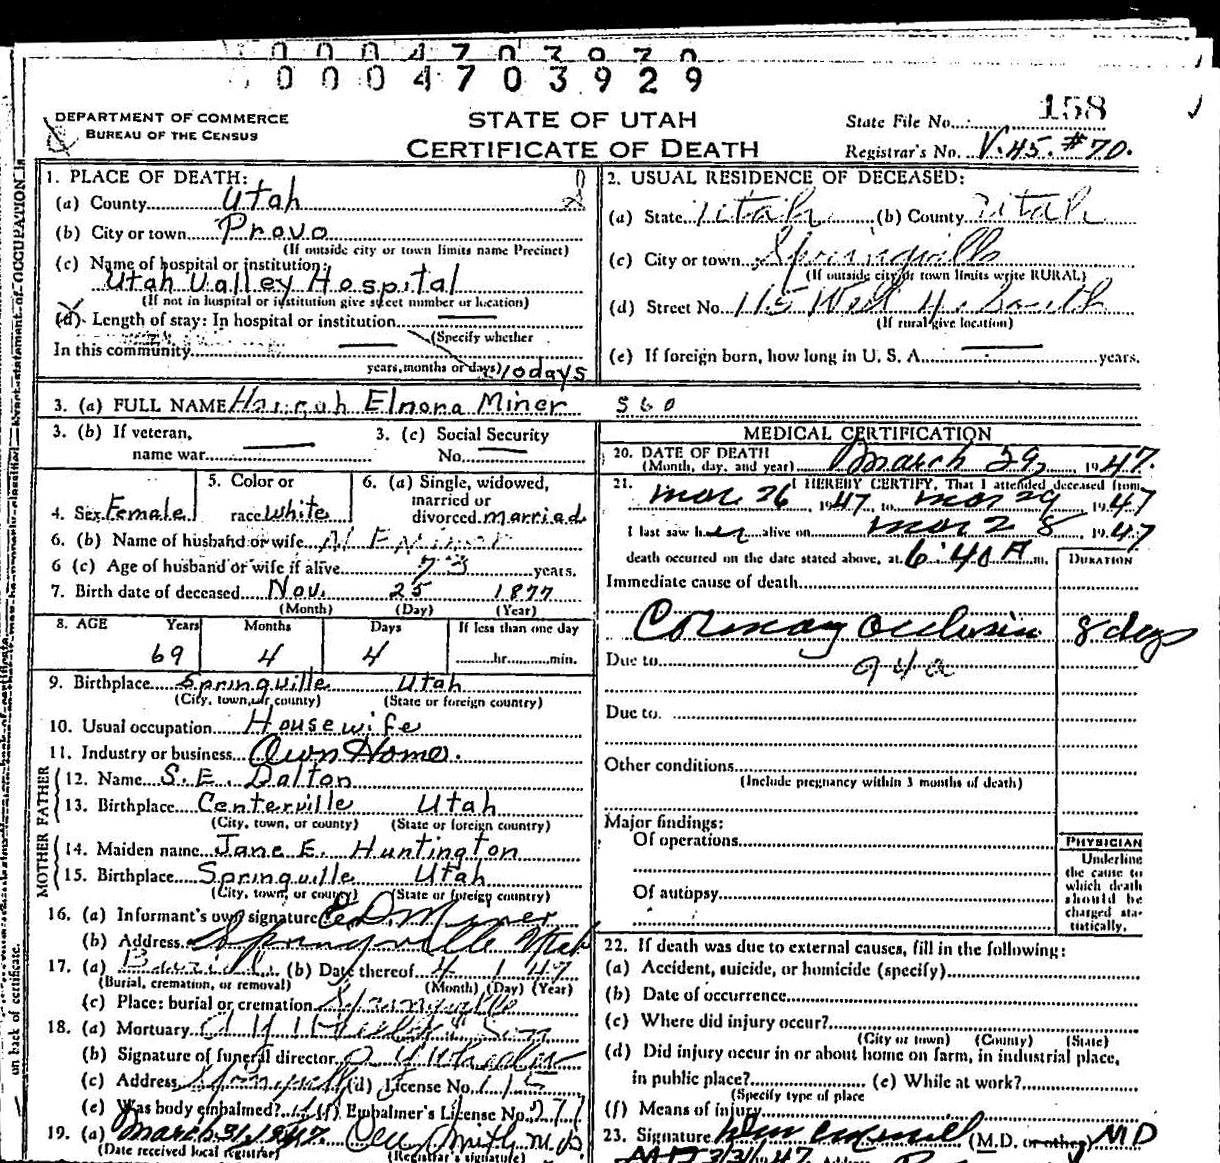 0004703929
158
DEPARTMENT OF COMMERCE
BUREAU OF THE CENSUS
STATE OF UTAH
CERTIFICATE OF DEATH
State File No.
Registrar's No. V.45. #70.
1. PLACE OF DEATH:
(a) County Utah
(b) City or town Provo
(If outside city or town limits name Precinct)
(c) Name of hospital or institution:
Utah Valley Hospital
(If not in hospital or institution give street number or location)
(d) Length of stay: In hospital or institution
(Specify whether
In this community
years, months or days) 10 days
2. USUAL RESIDENCE OF DECEASED:
(a) State Utah (b) County Utah
(c) City or town Springville
(If outside city or town limits write RURAL)
(d) Street No. 115 West 4. South
(If rural give location)
(e) If foreign born, how long in U. S. A. years.
3. (a) FULL NAME Hannah Elnora Miner 560
3. (b) If veteran,
name war
3. (c) Social Security
No.
4. Sex Female
5. Color or
race white
6. (a) Single, widowed,
married or
divorced married
6. (b) Name of husband or wife
6 (c) Age of husband or wife if alive 73 years.
7. Birth date of deceased Nov. 25 1877
(Month) (Day) (Year)
8. AGE Years Months Days If less than one day
69 4 4 hr. min.
9. Birthplace Springville Utah
(City, town, or county) (State or foreign country)
10. Usual occupation Housewife
11. Industry or business Own Home.
FATHER
12. Name S. E. Dalton
13. Birthplace Centerville Utah
(City, town, or county) (State or foreign country)
MOTHER
14. Maiden name Jane E. Huntington
15. Birthplace Springville Utah
(City, town, or county) (State or foreign country)
16. (a) Informant's own signature Miner
(b) Address Springville Utah
17. (a) Burial (b) Date thereof 4 1 47
(Burial, cremation, or removal) (Month) (Day) (Year)
(c) Place: burial or cremation Springville
18. (a) Mortuary
(b) Signature of funeral director
(c) Address Springville (d) License No. 115
(e) Was body embalmed? (f) Embalmer's License No. 271
19. (a) March 31, 1947 Smith M.D.
(Date received local registrar) (Registrar's signature)
MEDICAL CERTIFICATION
20. DATE OF DEATH
(Month, day, and year) March 29, 1947.
21. I HEREBY CERTIFY, That I attended deceased from
Mar 26 1947 to Mar 29 1947
I last saw her alive on Mar 28 1947
death occurred on the date stated above, at 6:40 A m.
DURATION
Immediate cause of death
Coronary Occlusion 8 days
Due to 94a
Due to
Other conditions
(Include pregnancy within 3 months of death)
Major findings:
Of operations
Of autopsy
PHYSICIAN
Underline
the cause to
which death
should be
charged sta-
tistically.
22. If death was due to external causes, fill in the following:
(a) Accident, suicide, or homicide (specify)
(b) Date of occurrence
(c) Where did injury occur?
(City or town) (County) (State)
(d) Did injury occur in or about home on farm, in industrial place,
in public place? (e) While at work?
(Specify type of place
(f) Means of injury
23. Signature (M.D. or other) MD
3/31/47
on back of certificate.